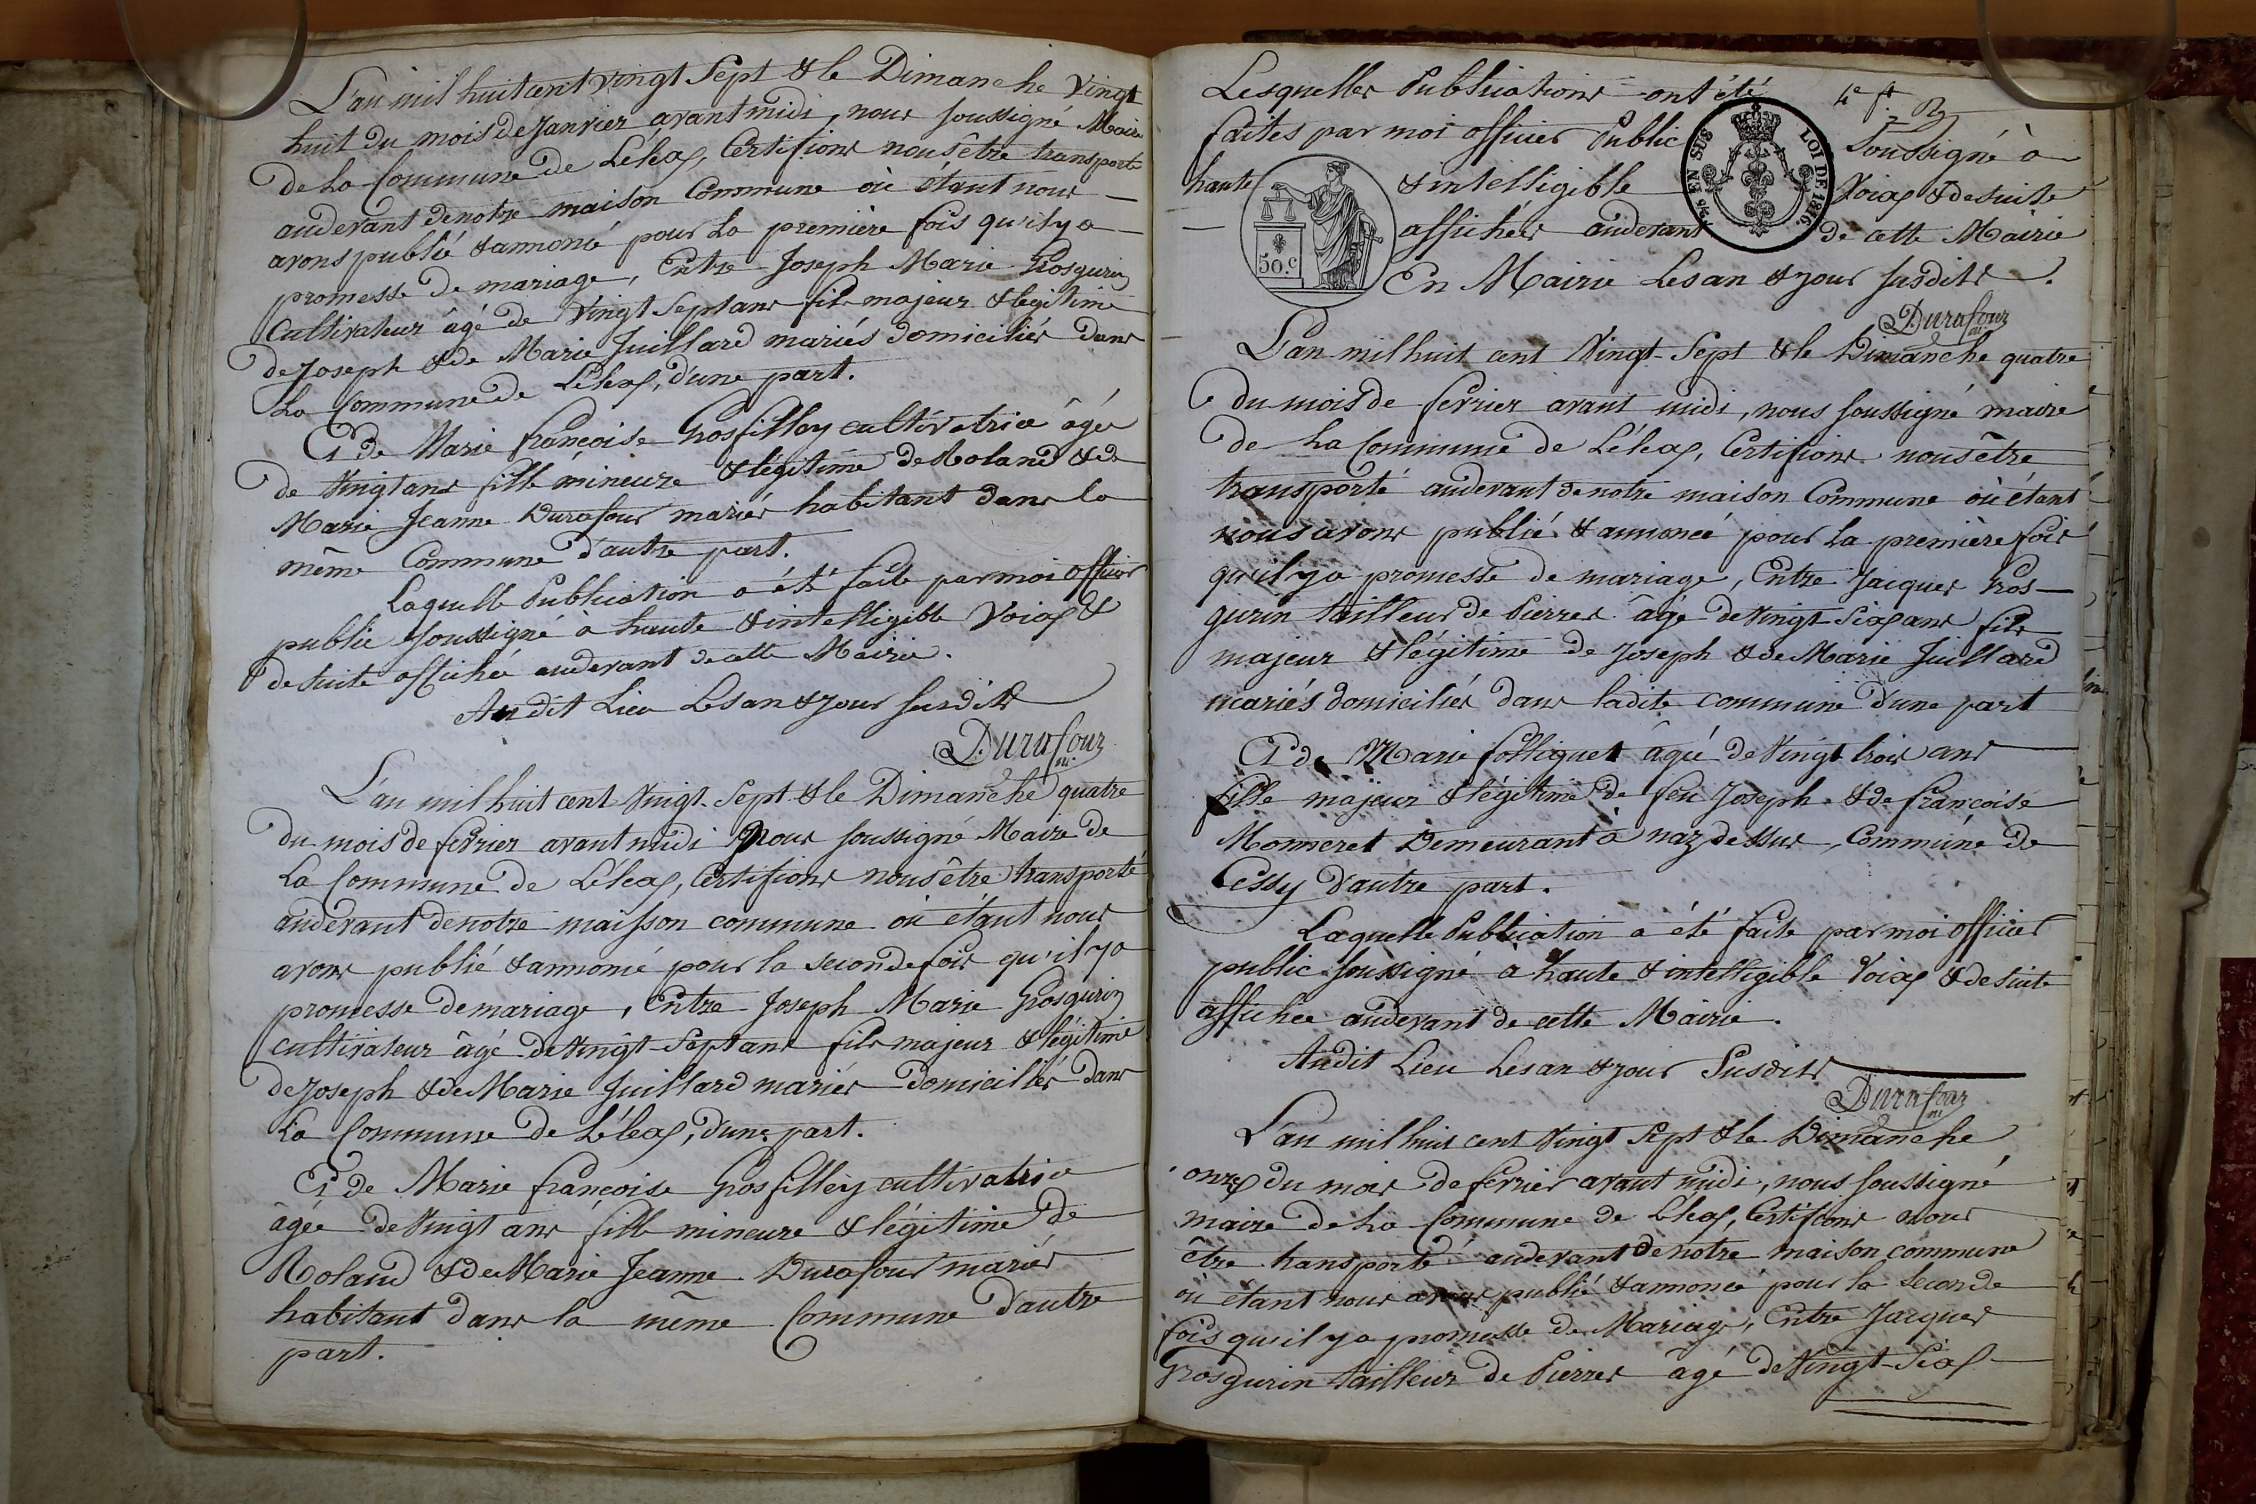 L'an mil huit cent vingt Sept & le Dimanche Vingt
huit du mois de Janvier avant midi, nous soussigné Maire
de la Commune de Lélex, Certifions nous être transporté
audevant de notre maison Commune où étant nous
avons publié & annoncé pour la première fois qu'il y a
promesse de mariage, Entre Joseph Marie Grosgurin
Cultivateur âgé de Vingt Sept ans fils majeur & légitime
de Joseph & de Marie Juillard mariés domiciliés dans
la Commune de Lélex, d'une part.
Et de Marie françoise Grosfilley cultivatrice âgée
de Vingt ans fille mineure & légitime de Roland & de
Marie Jeanne Durafour mariés habitant dans la
même Commune d'autre part.
Laquelle Publication a été faite par moi officier
public soussigné a haute & intelligible Voix &
de suite affichée audevant de cette Mairie.
Audit Lieu Les an & jour susdits
Durafour
m.
L'an mil huit cent Vingt-Sept & le Dimanche quatre
du mois de fevrier avant midi Nous soussigné Maire de
la Commune de Lélex, Certifions nous être transporté
audevant de notre maisson commune où étant nous
avons publié & annoncé pour la seconde fois qu'il y a
promesse de mariage, Entre Joseph Marie Grosgurin
cultivateur âgé de Vingt-Sept ans fils majeur & légitime
de Joseph & de Marie Juillard mariés Domiciliés dans
la Commune de Lélex, d'une part.
Et de Marie françoise Grosfilley cultivatrice
âgée de Vingt ans fille mineure & légitime de
Roland & de Marie Jeanne Durafour mariés
habitant dans la même Commune d'autre
part.
Lesquelles Publications ont été
faites par moi officier Public Soussigné à
haute & intelligible Voix & de suite
affichées audevant de cette Mairie
En Mairie Les an & jour susdits.
EN SUS
LOI DE 1816.
50.c
Durafour
m.
L'an mil huit cent Vingt-Sept & le Dimanche quatre
du mois de fevrier avant midi, nous soussigné maire
de la Commune de Lélex, Certifions nous être
transporté audevant de notre maison Commune où étant
nous avons publié & annoncé pour la première fois
qu'il y a promesse de mariage, Entre Jacques Gros-
gurin tailleur de Pierres âgé de Vingt Six ans fils
majeur & légitime de Joseph & de Marie Juillard
mariés domiciliés dans ladite commune d'une part
Et de Marie folliquet âgée de Vingt trois ans
fille majeur & légitime de feu Joseph & de françoise
Monneret Demeurant à naz dessus, Commune de
Cessy d'autre part.
Laquelle Publication a été faite par moi officier
public soussigné a haute & intelligible Voix & de suite
affichée audevant de cette Mairie.
Audit Lieu Les an & jour Susdits
Durafour
m.
L'an mil huit cent Vingt Sept & le Dimanche
onze du mois de fevrier avant midi, nous soussigné
maire de la Commune de Lélex, Certifions nous
être transporté audevant de notre maison commune
où étant nous avons publié & annoncé pour la Seconde
fois qu'il y a promesse de Mariage, Entre Jacques
Grosgurin tailleur de Pierres âgé de Vingt-Six